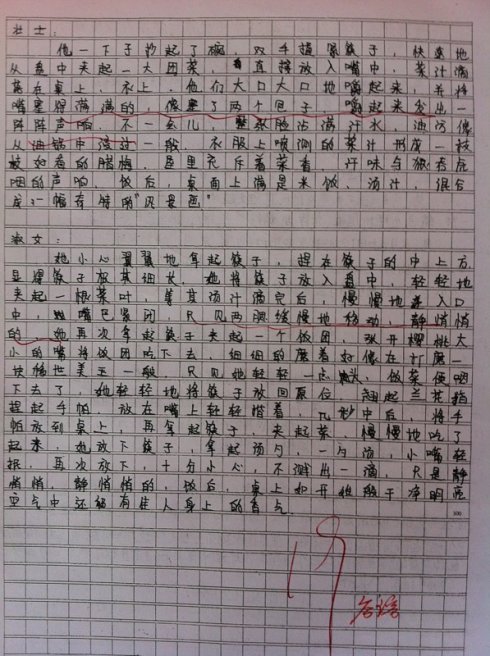 壮士：
他一下子抄起了碗，双手握紧筷子，快速地
从盘中夹起一大团菜，直接放入嘴中，菜汁滴
落在桌上，衣上，他们大口大口地嚼起来，并将
嘴塞得满满的，像塞了两个包子，嚼起来发出一
阵阵声响，不一会儿，整张脸沾满汗水，油污像
从油锅中一般，衣服上喷测的菜汁形成一被
较好看的腊梅，屋里充斥着菜香，汗味与狼吞虎
咽的声响，饭后，桌面上满是米饭，汤汁，很合
成了一幅奇特的"风景画"
淑女：
她小心翼翼地拿起筷子，捏在筷子的中上方，
显得筷子放菜细长，她将筷子放入盘中，轻轻地
夹起一根菜叶，等其汤汁滴完后，慢慢地送入口
中，嘴巴紧闭，只见两腮缓慢地移动，静悄悄
的，她再次拿起筷子夹起一个饭团，张开樱桃大
小的嘴将饭团吃下去，细细的嚼着好像在打磨一
块稀世美玉一般，只见她轻轻一点头，饭菜便咽
下去了，她轻轻地将筷子放回原位，翘起兰花指
捏起手帕，放在嘴上轻轻擦着，几秒中后，将手
帕放到桌上，再拿起筷子，夹起菜，慢慢地吃了
起来，她放下筷子，拿起汤勺，一勺汤，小嘴轻
抿，再次放下，十分小心，不溅出一滴，只是静
悄悄，静悄悄的，饭后，桌上如开始般干净明亮
空气中还留有佳人身上的香气
300